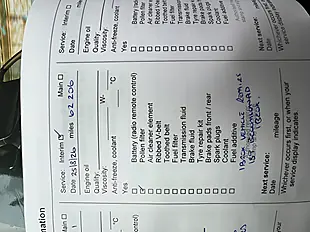 Service: Interim ☑ Main ☐
Date 25/8/26 miles 62 206
Engine oil
Quality,
Viscosity: W-
Anti-freeze, coolant °C
Yes
☐ Battery (radio remote control)
☑ Pollen filter
☐ Air cleaner element
☐ Ribbed V-belt
☐ Toothed belt
☐ Fuel filter
☐ Transmission fluid
☐ Brake fluid
☐ Tyre repair kit
☐ Brake pads front / rear
☐ Spark plugs
☐ Coolant
☐ Fuel additive
Next service:
Date mileage
Whichever occurs first, or when your
service display indicates
Service: Interim ☐ Main ☐
Date miles
Engine oil
Quality,
Viscosity:
Anti-freeze, coolant
Yes
Battery (radio
Pollen filter
Air cleaner
Ribbed V-
Toothed belt
Fuel filter
Transmission
Brake fluid
Tyre repair
Brake pads
Spark plugs
Coolant
Fuel additive
Next service:
Date
Whichever occurs
service display
mation
Main ☐
°C
control)
rear
mileage
when your